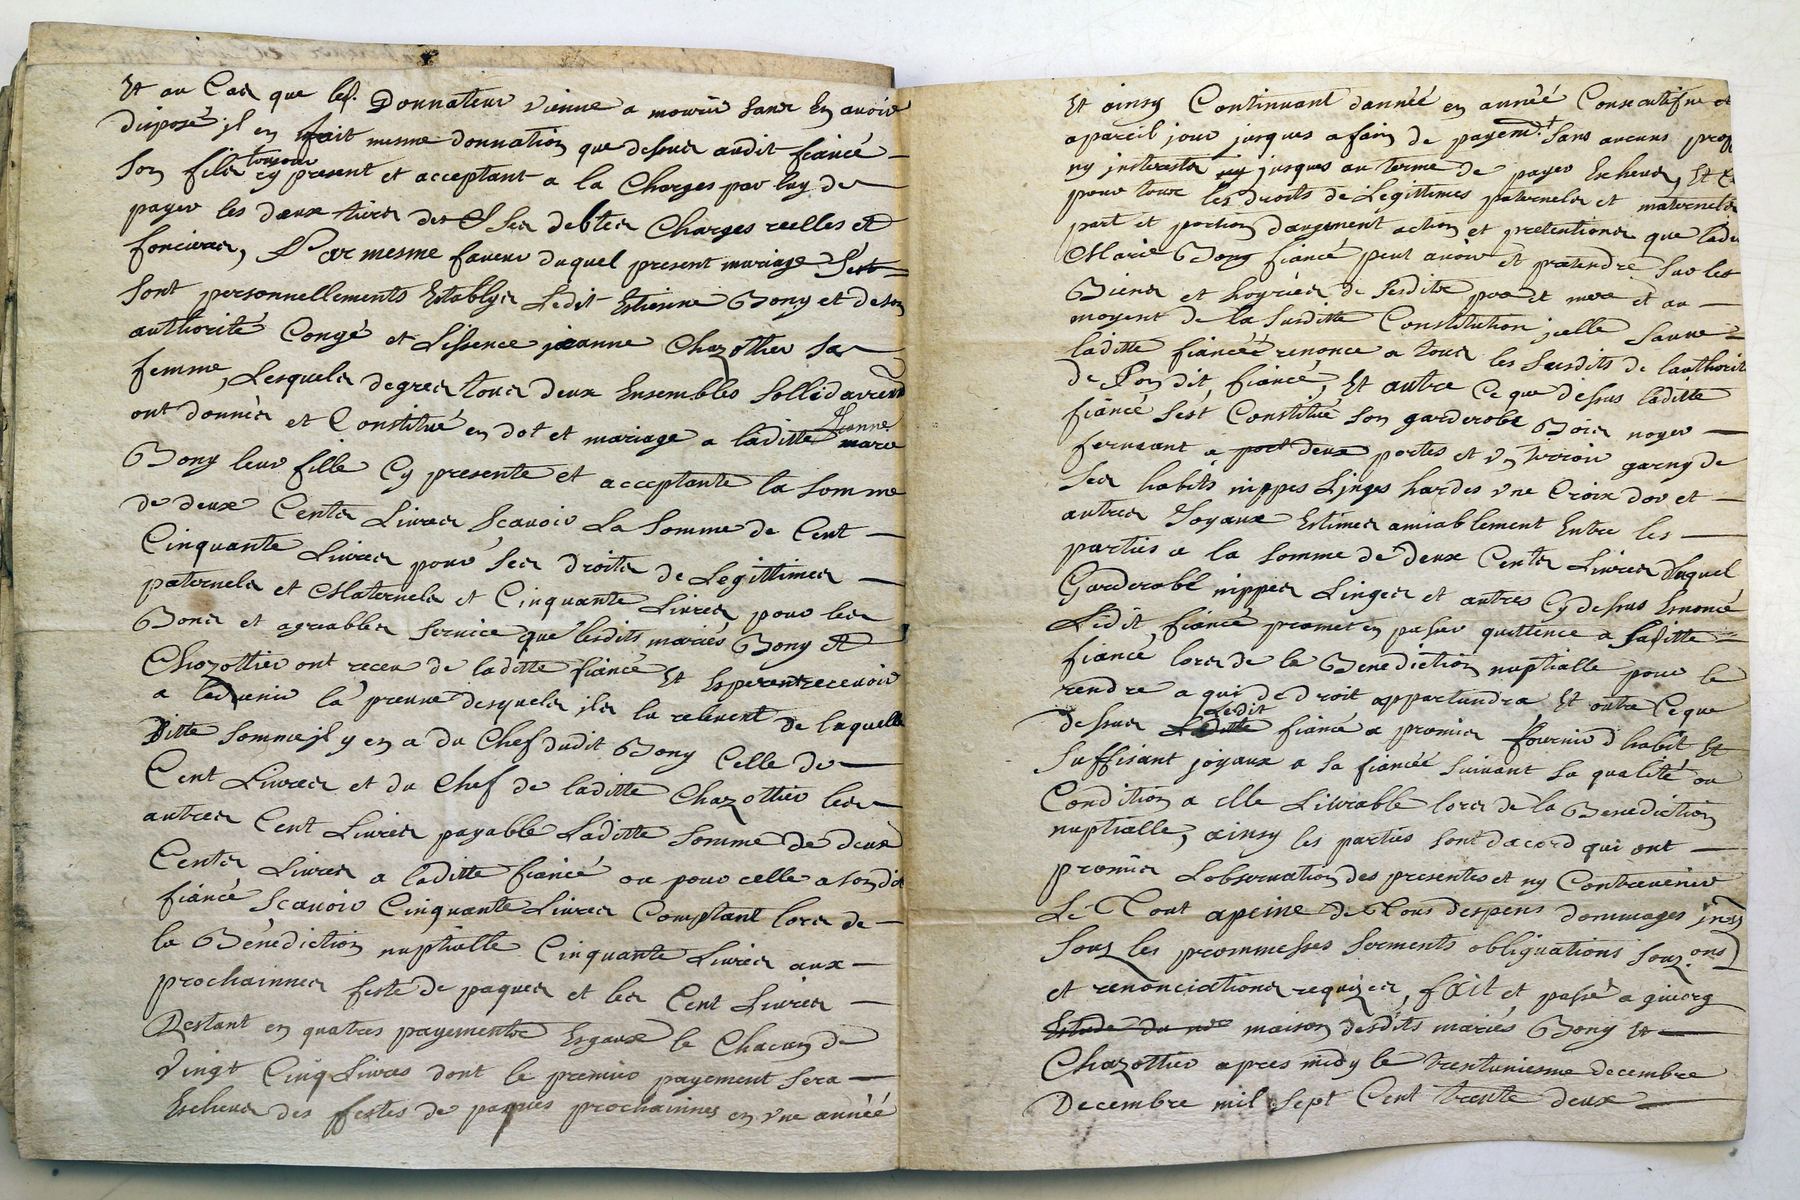 Et au Cas que led. Donnateur vienne a mourir sans En avoir
disposé il en fait mesme donnation que dessus audit fiancé
son fils toujour cy present et acceptant a la Charges par luy de
payer les deux tiers des ses debtes Charges reelles et
foncieres, Par mesme faveur duquel present mariage sest
sont personnellements Establys Ledit Estienne Bony et de son
authorité Congé et Lissence jeanne Chazottier sa
femme, Lesquels de gres tous deux Ensembles sollidairement
ont donnés et Constitué en dot et mariage a laditte Jeanne marie
Bony leur fille Cy presente et acceptante la somme
de deux Cents Livres scavoir La somme de Cent
Cinquante Livres pour ses droits de Legittimes
paternels et Maternels et Cinquante Livres pour les
Bons et agreables service que lesdits mariés Bony Et
Chazottier ont receu de laditte fiancé Et Esperent recevoir
a ladvenir la preuve desquels ils la relevent de laquelle
Ditte somme il y en a du Chef dudit Bony Celle de
Cent Livres et du Chef de laditte Chazottier les
autres Cent Livres payable Laditte somme de deux
Cents Livres a laditte fiancé ou pour celle a son dit
fiancé Scavoir Cinquante Livres Comptant lors de
la Bénediction nuptialle Cinquante Livres aux
prochainnes feste de paques et les Cent Livres
Restant en quatres payements Esgaux le Chacun de
Vingt Cinq Livres dont le premier payement sera
Escheus des festes de paques prochainnes en vne année
Et ainsy Continuant dannéé en année Consecutifue et
apareil jour jusques afain de payemt. sans aucuns
ny jnterests ny jusques au terme de payer Escheus, Et
pour tous les droits de Legittimes paternels et maternels
part et portion daugment action et pretentions que
Marie Bony fiancé peut avoir et pretendre sur les
Biens et hoyries de sesdits pere et mere et au
moyent de la susditte Constitution jcelle
laditte fiancéé renonce a tous les susdits de lauthorit
de son dit, fiancé, Et outre Ce que dessus laditte
fiancé sest Constitué son garderobe Bois noyer
fermant a port deux portes et vn tiroir garny de
ses habits nippes Linges hardes vne Croix dor et
autres Joyaux Estimes amiablement Entre les
parties a la somme de deux Cents Livres duquel
Garderobe nippes Linges et autres Cy dessus Enoncé
Ledit fiancé promet en passer quittence a saditte
fiancé lors de la Benediction nuptialle pour le
rendre a qui de droit appartiendra Et outre Ce que
dessus Laditte Ledit fiancé a promis fournir dhabit Et
suffisant joyaux a sa fiancéé suivant sa qualité ou
Condition a elle Livrable lors de la Benediction
nuptialle, ainsy les parties sont dacord qui ont
promis Lobservation des presentes et ny Contrevenir
Le Tout a peine de Tous despens dommages
sous les prommesses serments obliguations
et renonciations requizes, fait et passé a givorg
Estude du nore maison desdits mariés Bony Et
Chazottier apres midy le trentuniesme decembre
Decembre mil sept Cent trente deux